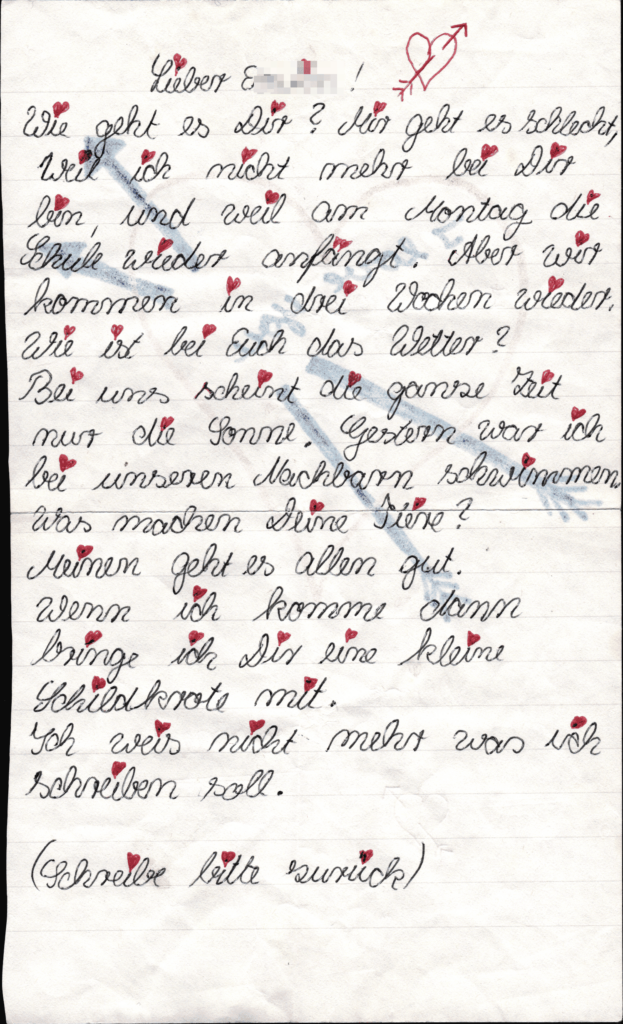 Lieber !
Wie geht es Dir? Mir geht es schlecht,
Weil ich nicht mehr bei Dir
bin, und weil am Montag die
Schule wieder anfängt. Aber wir
kommen in drei Wochen wieder.
Wie ist bei Euch das Wetter?
Bei uns scheint die ganze Zeit
nur die Sonne. Gestern war ich
bei unseren Nachbarn schwimmen.
Was machen Deine Tiere?
Meinen geht es allen gut.
Wenn ich komme dann
bringe ich Dir eine kleine
Schildkrote mit.
Ich weis nicht mehr was ich
schreiben soll.
(Schreibe bitte zurück)